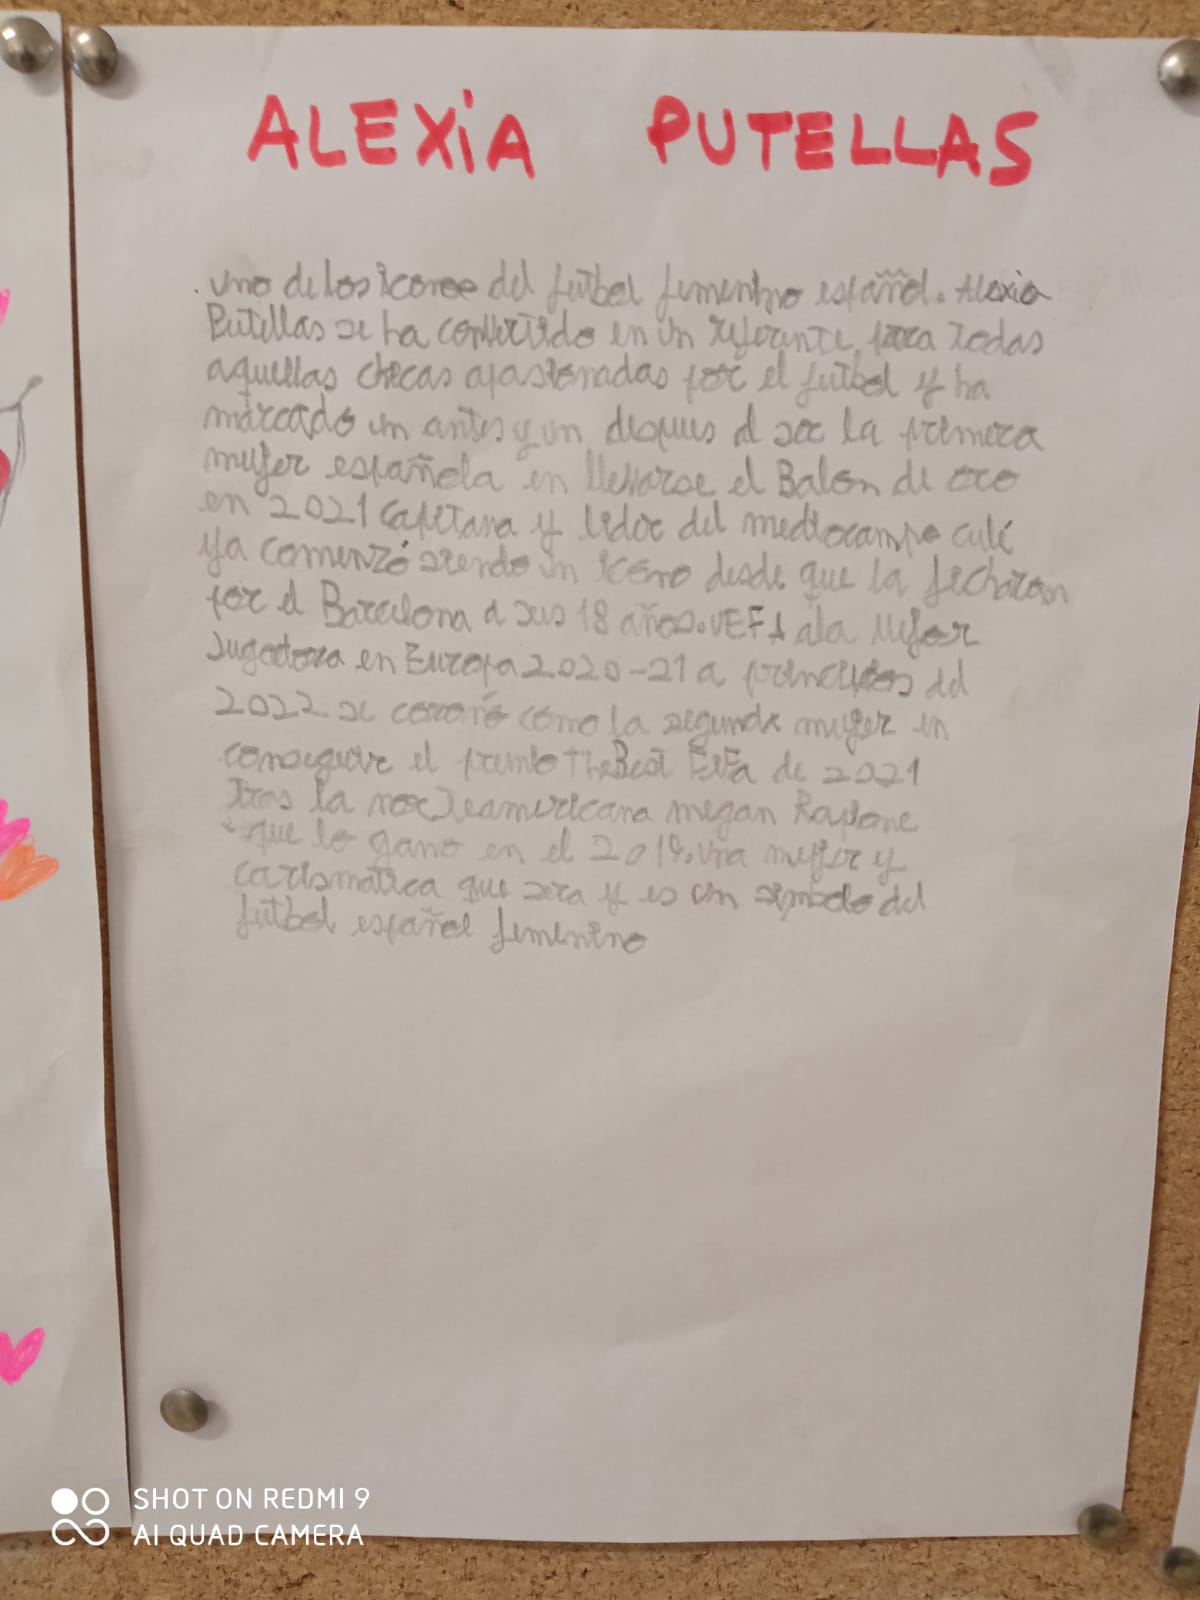 ALEXiA PUTELLAS
. uno de los icoroe del futbol femenino español. Alexia
Putellas se ha convertido en un referente para todas
aquellas checas apasionadas por el futbol y ha
marcado un antes y un despues al ser la primera
mujer española en llevarse el Balón de oro
en 2021 capitana y lider del mediocampo culé
ya comenzó siendo un icono desde que la ficharon
por el Barcelona a sus 18 años. UEFA a la Mejor
Jugadora en Europa 2020-21 a principios del
2022 se coronó como la segunda mujer en
conseguir el premio The Best FiFa de 2021
tras la norteamericana megan Rapione
que lo gano en el 2019. una mujer y
carismatica que sera y es un simbolo del
futbol español femenino
SHOT ON REDMI 9
AI QUAD CAMERA